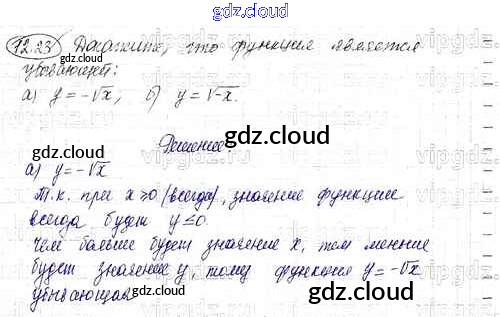 gdz.cloud
12.23 Докажите, что функция является
gdz.cloud
убывающей:
а) y=-√x; б) y=√-x.
Решение:
gdz.cloud
а) y=-√x
Т.к. при x≥0 (всегда), значение функции
всегда будет y≤0.
gdz.cloud
Чем больше будет значение x, тем меньше
будет значение y, тому функция y=-√x
убывающая
gdz.cloud
gdz.cloud